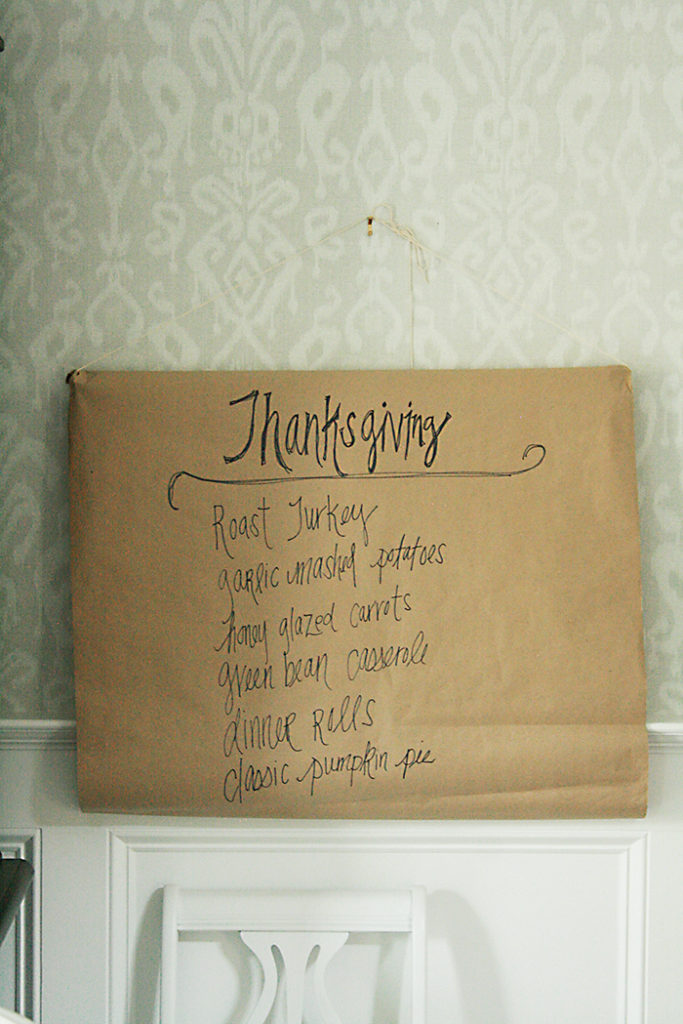 Thanksgiving
Roast Turkey
garlic mashed potatoes
honey glazed carrots
green bean casserole
dinner rolls
classic pumpkin pie